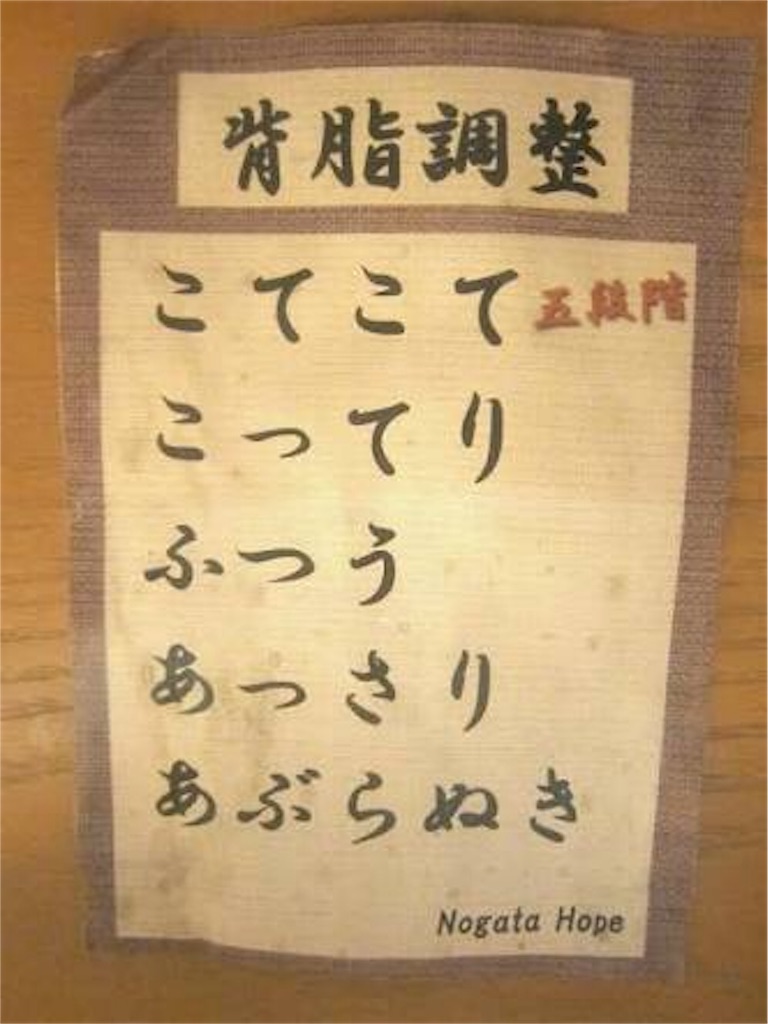 背脂調整
こてこて 五段階
こってり
ふつう
あっさり
あぶらぬき
Nogata Hope